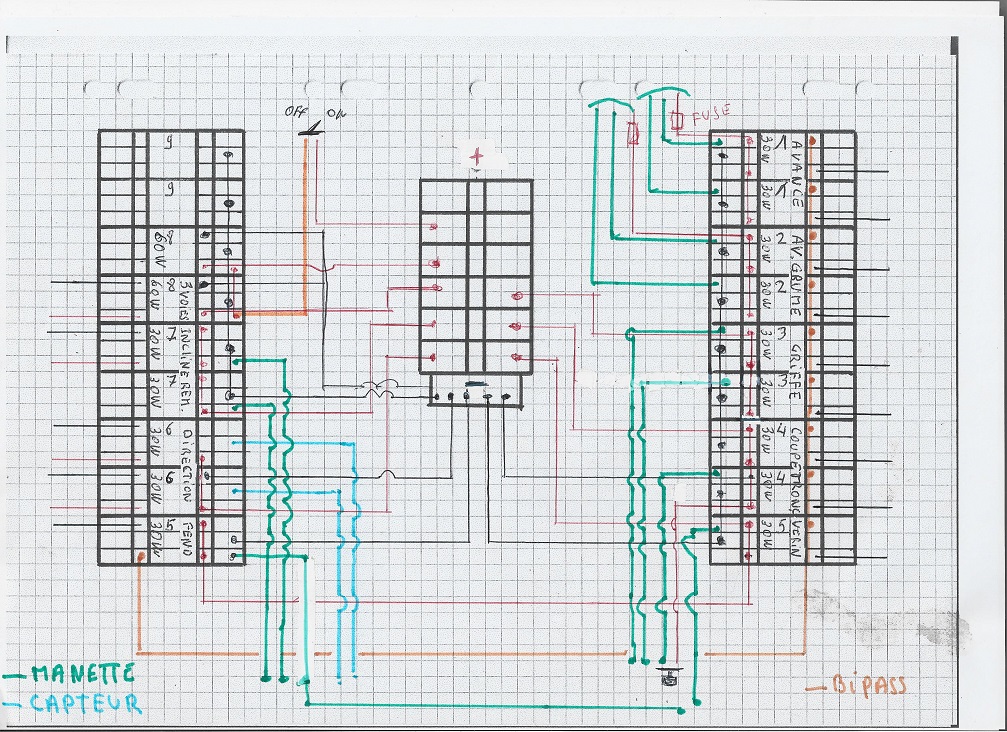 OFF ON
FUSE
+
9
9
8
60W
8
60W
3 VOIES
7
30W
INCLINE REM.
7
30W
6
30W
DIRECTION
6
30W
5
30W
FEND
-
1
30W
AVANCE
1
30W
2
30W
AV. GRUME
2
30W
3
30W
GRIFFE
3
30W
4
30W
COUPE TRONC
4
30W
5
30W
VERIN
MANETTE
CAPTEUR
BiPASS